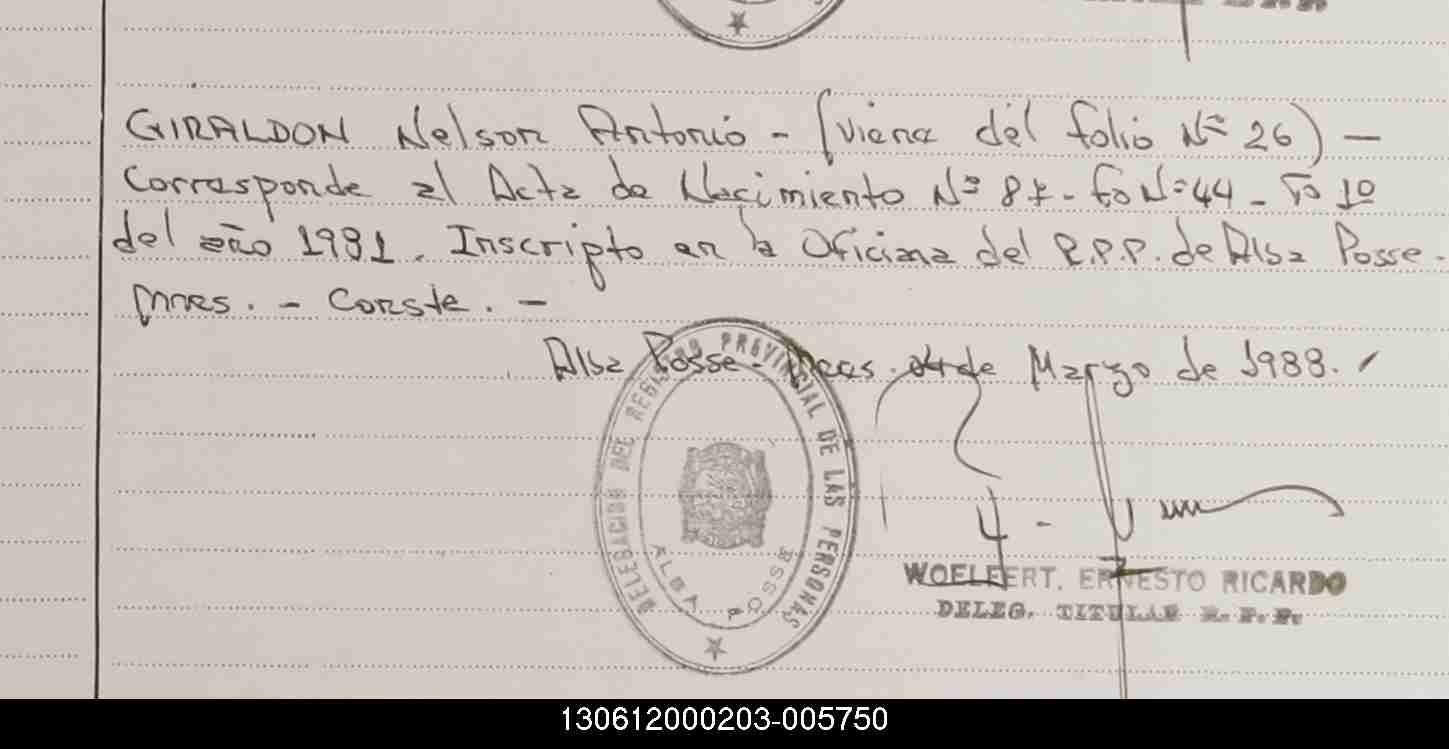 GIRALDON Nelson Antonio - (viene del folio Nº 26) -
Corresponde al Acta de Nacimiento Nº 87 - Fo Nº 44 - Tº 1º
del año 1981. Inscripto en la Oficina del R.P.P. de Alba Posse -
Mnes. - Conste. -
Alba Posse - Mnes. 04 de Marzo de 1988.
DELEGACION DEL REGISTRO PROVINCIAL DE LAS PERSONAS
ALBA POSSE
WOELFERT, ERNESTO RICARDO
DELEG. TITULAR R. P. P.
130612000203-005750